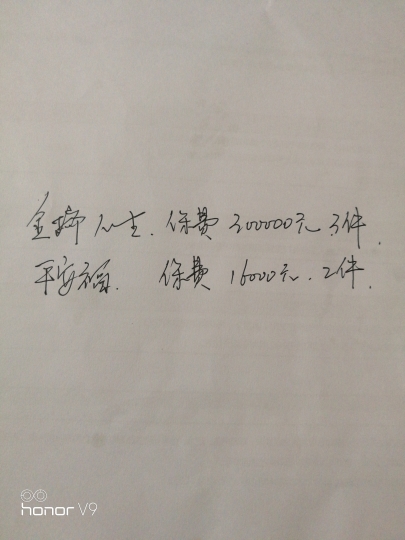 金瑞人生.保费300000元.3件.
平安福. 保费16000元.2件.
honor V9